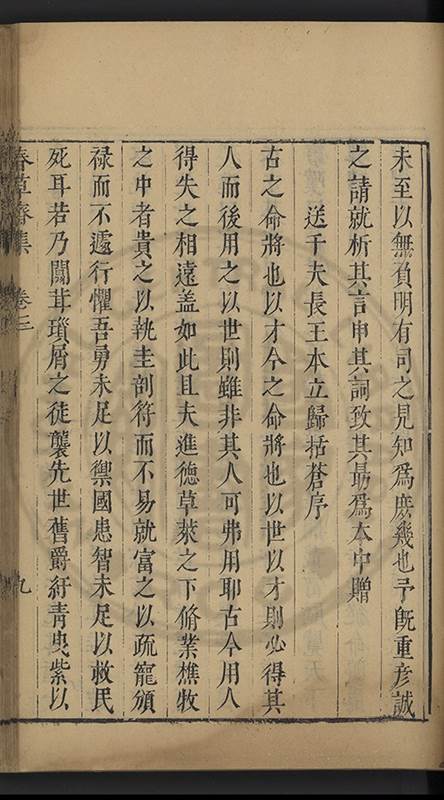 未至以無負明有司之見知爲庶幾也予旣重彦誠
之請就析其言申其詞致其勗爲本中贈
送千夫長王本立歸括蒼序
古之命將也以才今之命將也以世以才則必得其
人而後用之以世則雖非其人可弗用耶古今用人
得失之相遠盖如此且夫進德草萊之下脩業樵牧
之中者貴之以執圭剖符而不易就富之以疏寵頒
禄而不遽行懼吾勇未足以禦國患智未足以救民
死耳若乃闒茸瑣屑之徒襲先世舊爵紆青曳紫以
春草齋集 卷三 九